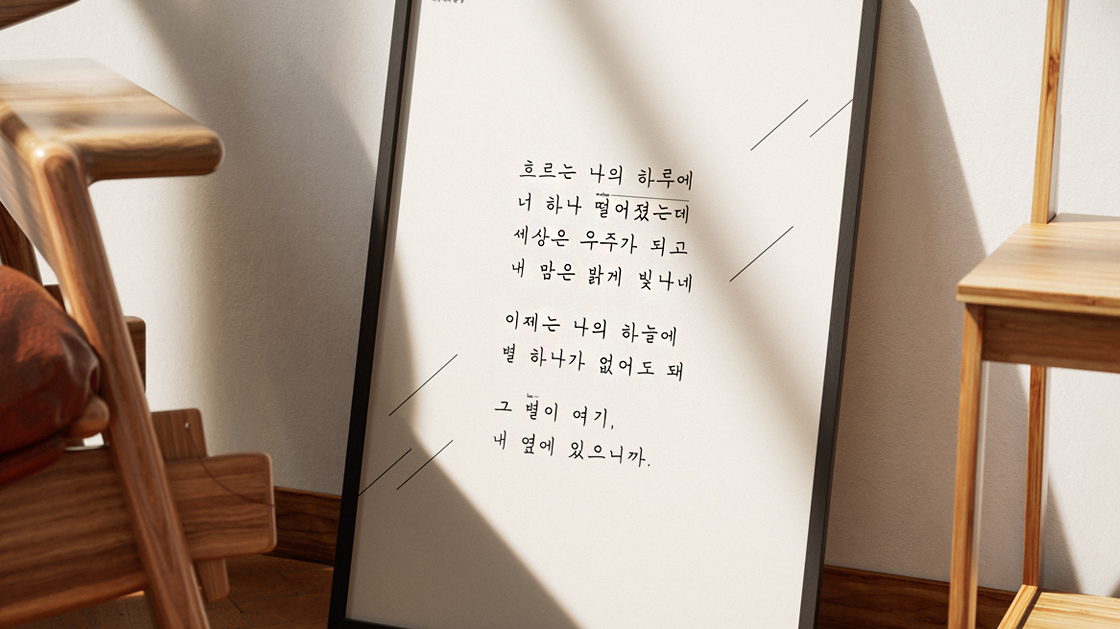 흐르는 나의 하루에
너 하나 떨어졌는데
세상은 우주가 되고
내 맘은 밝게 빛나네
이제는 나의 하늘에
별 하나가 없어도 돼
그 별이 여기,
내 옆에 있으니까.